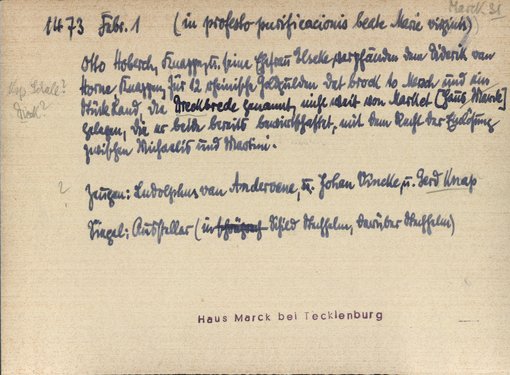 Marck 31
1473 Febr. 1 (in profesto purificacionis beate Marie virginis)
Otto Hoberch, Knappe, u. seine Ehefrau Ilseke verpfänden dem Diderik van
Horne Knappen für 12 rheinische Goldgulden dat brock to March und ein
Stück Land, die Dreckbrede genannt, nicht weit von Markhot [Haus Marck]
gelegen, die er beide bereits bewirtschaftet, mit dem Recht der Einlösung
zwischen Michaelis und Martini.
? Zeugen: Ludolphus van Andervene, u. Johan Vincke, u. Gerd Knap
Siegel: Aussteller (in Schild Wechselm, darüber Wechselm)
Haus Marck bei Tecklenburg